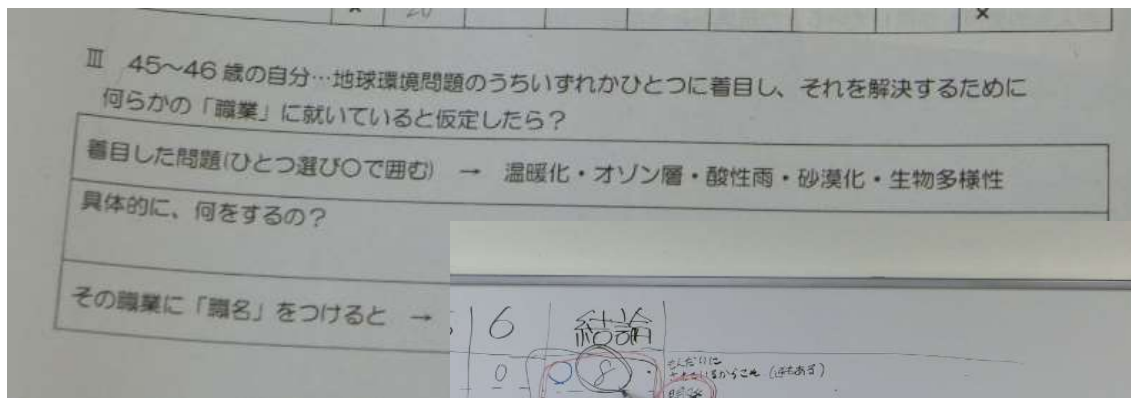 20
×
Ⅲ 45～46歳の自分…地球環境問題のうちいずれかひとつに着目し、それを解決するために
何らかの「職業」に就いていると仮定したら？
着目した問題(ひとつ選び○で囲む) → 温暖化・オゾン層・酸性雨・砂漠化・生物多様性
具体的に、何をするの？
その職業に「職名」をつけると →
6 結論
0 ○ 8
(逆もある)